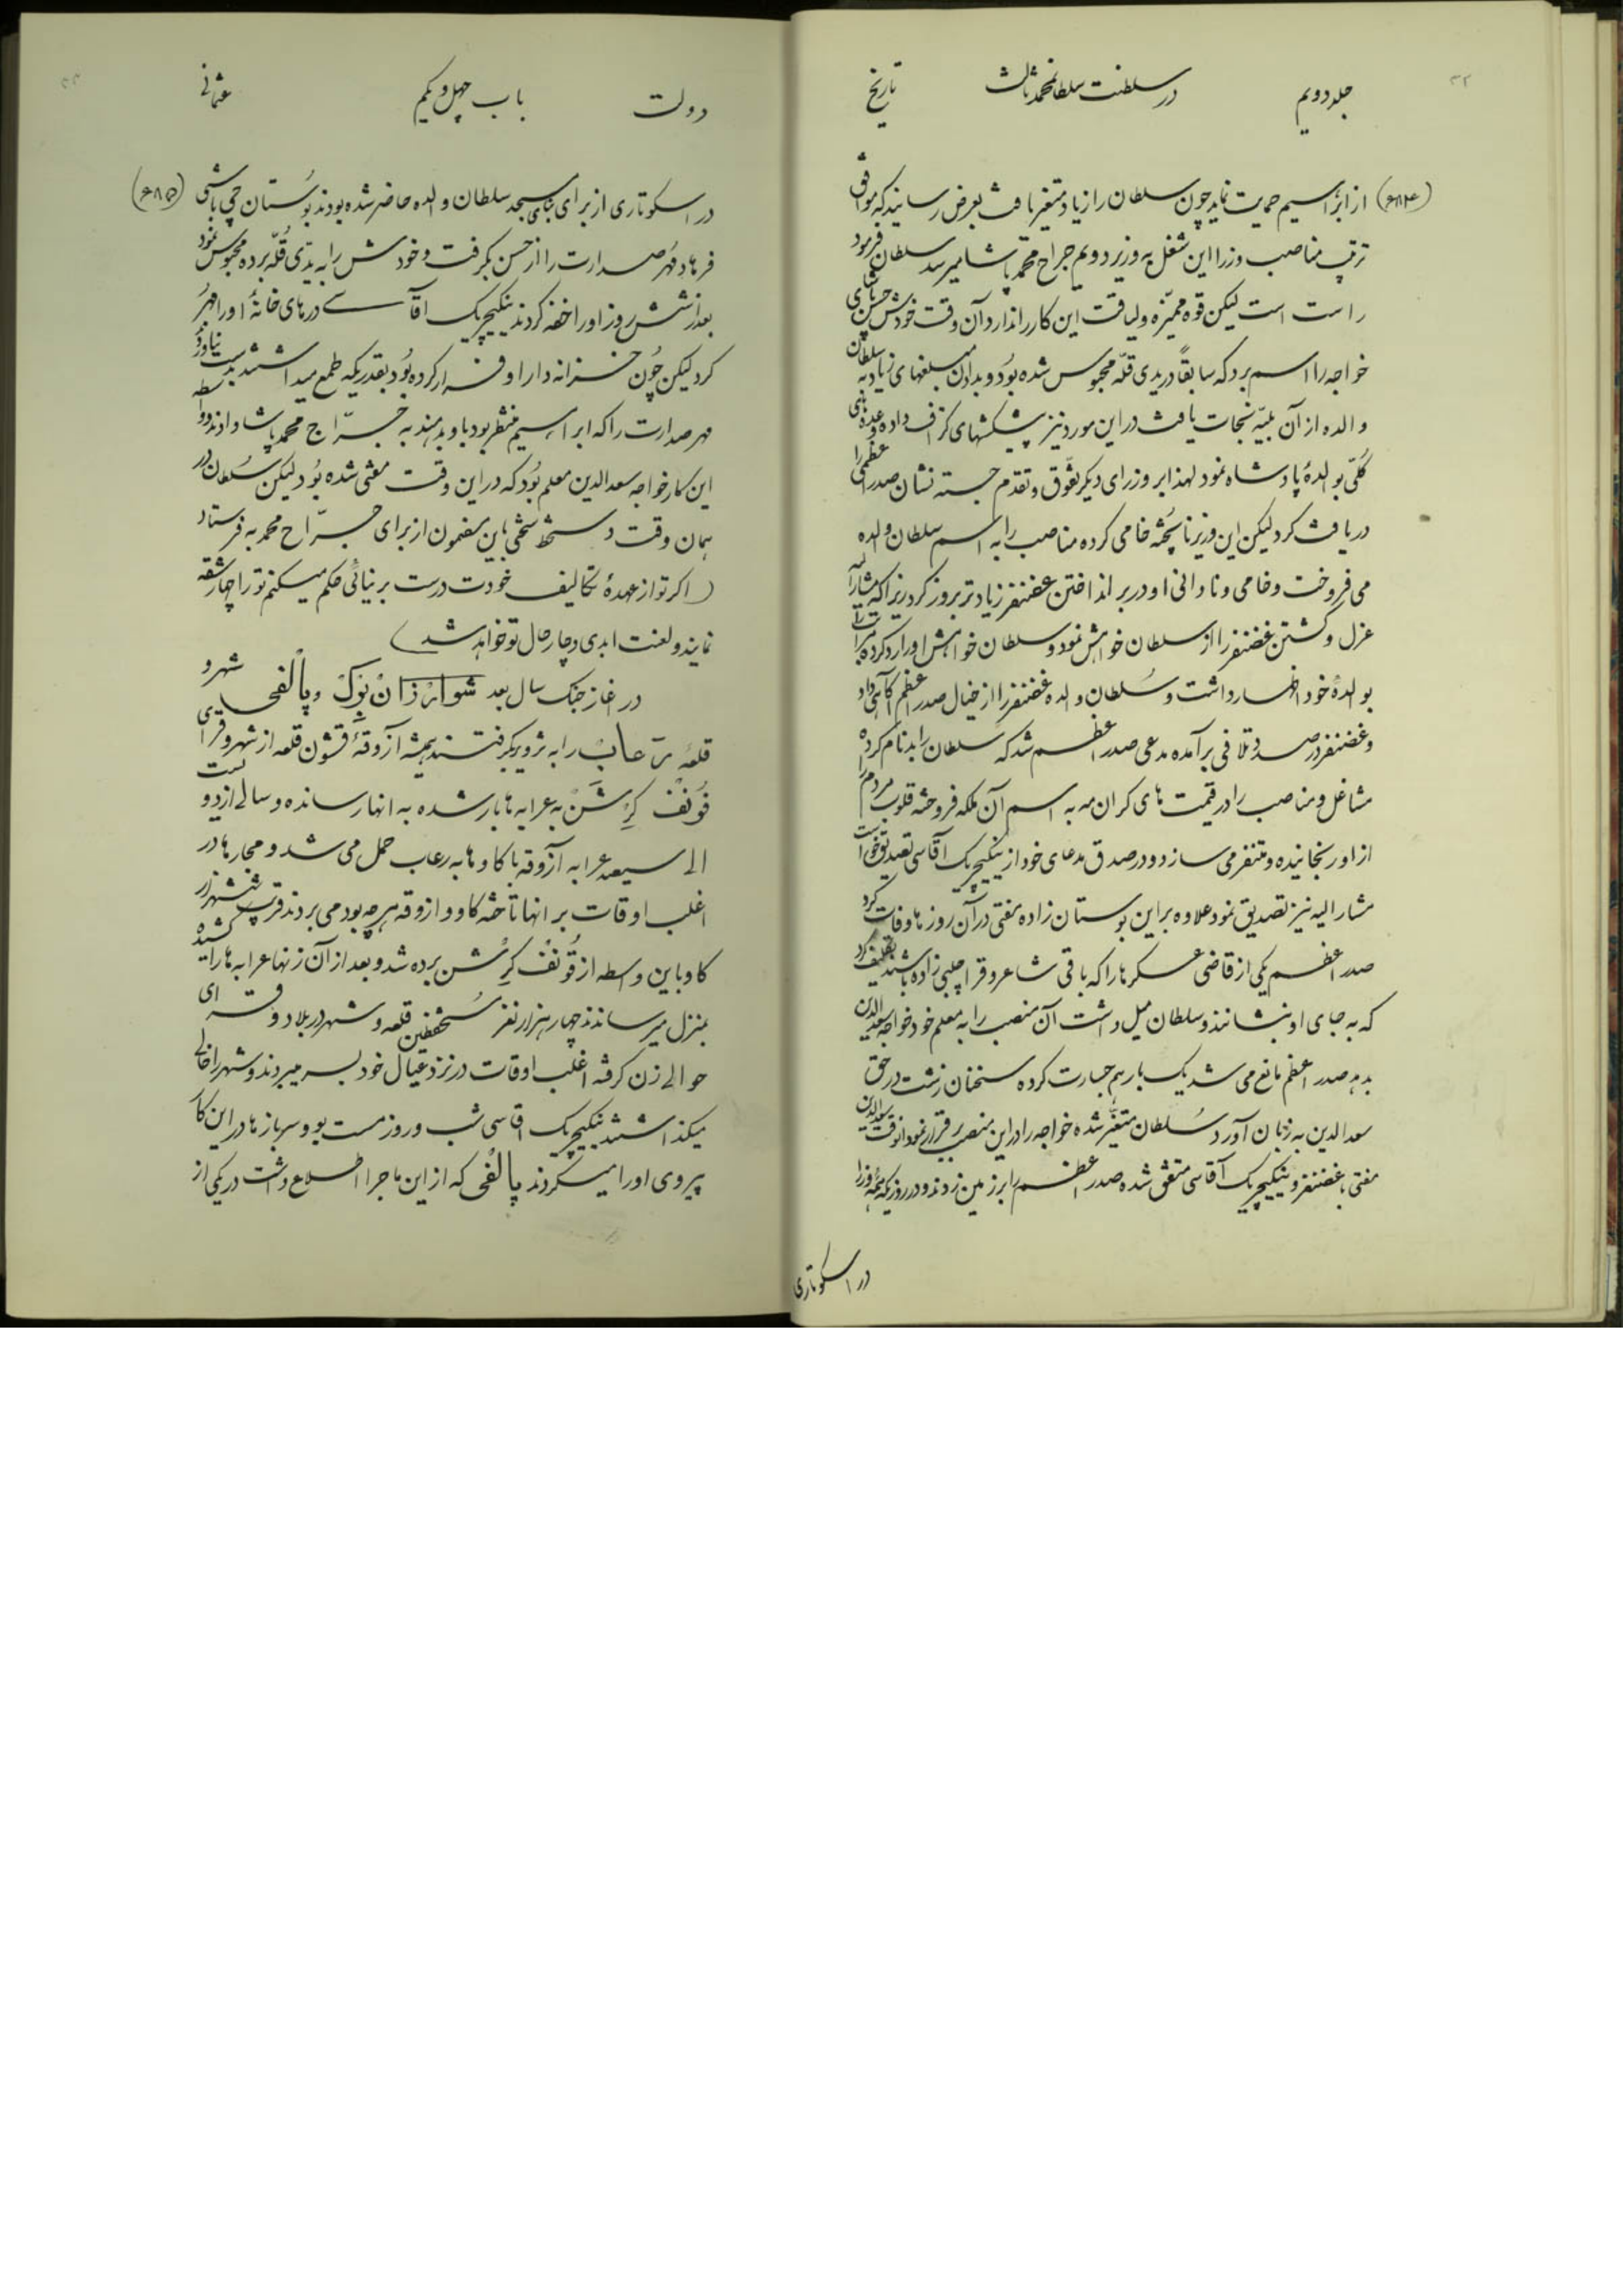 ۳۲
جلد دویم در سلطنت سلطان محمد ثالث تاریخ
(۶۸۴) از ابراهیم حمایت نماید چون سلطان را زیاد متغیر یافت بعرض رسانید که موافق
ترتیب مناصب وزرا این شغل به وزیر دویم جراح محمد پاشا میرسد سلطان فرمود
راست است لیکن قوه ممیّزه و لیاقت این کار را ندارد آن وقت خودش حسن پاشای
خواجه را اسم برد که سابقاً در یدی قلّه محبوس شده بُود و بدادن مبلغهای زیاد به سلطان
والده از آن بلیّه نجات یافت در این مورد نیز پیشکشهای گزاف داده وعده‌های
کُلّی بوالدهٔ پادشاه نمود لهذا بر وزرای دیگر تفوّق و تقدم جسته نشان صدر عظمی را
دریافت کرد لیکن این وزیر ناپُخته خامی کرده مناصب را به اسم سلطان والده
می فروخت و خامی و نادانی او در بر انداختن غضنفر زیادتر بروز کرد زیرا که مشارالیه
عزل و کشتن غضنفر را از سلطان خواهش نمود و سلطان خواهش او را رد کرده
بوالدهٔ خود اظهار داشت و سُلطان والده غضنفر را از خیال صدر اعظم آگاهی داد
و غضنفر در صدد تلافی برآمده مدعی صدر اعظم شد که سلطان را بدنام کرده
مشاغل و مناصب را در قیمت های گران مه به اسم آن ملکه فروخته قلوب مردم را
از او رنجانیده و متنفر می سازد و در صدق مدعای خود از ینکیچریک آقاسی تصدیق خواست
مشارالیه نیز تصدیق نمود علاوه بر این بوستان زاده مفتی در آن روزها وفات کرد
صدر اعظم یکی از قاضی عسکرها را که باقی شاعر و قرا چلبی زاده باشند تکلیف کرد
که به جای او بنشانند و سلطان میل داشت آن منصب را به معلم خود خواجه سعدالدین
بدهد صدر اعظم مانع می شد یک بار هم جسارت کرده سخنان زشت در حق
سعدالدین به زبان آورد سُلطان متغیّر شده خواجه را در این منصب برقرار نمود انوقت سعدالدین
مفتی با غضنفر و ینکیچریک آقاسی متفق شده صدر اعظم را بر زمین زدند و در روزیکه همهٔ وزرا
در اسکوتاری
۳۳
دولت باب چهل و یکم عثمانی
در اسکوتاری از برای بنای مسجد سلطان والده حاضر شده بودند بُوستان چی باشی (۶۸۵)
فرهاد مُهر صدارت را از حسن بگرفت و خودش را به یدّی قُلّه برده محبوس نمود
بعد از شش روز او را خفه کردند ینکیچریک آقاسی درهای خانهٔ او را مُهر
کرد لیکن چُون خزانه دار او فرار کرده بُود بقدریکه طمع میداشتند بدست نیاوردند
مهر صدارت را که ابراهیم منتظر بود باو بدهند به جرّاح محمد پاشا دادند و واسطه
این کار خواجه سعدالدین معلم بُود که در این وقت مفتی شده بُود لیکن سُلطان در
همان وقت دستخط سختی باین مضمون از برای جرّاح محمد به فرستاد
(اگر تو از عهدهٔ تکالیف خودت درست بر نیائی حکم میکنم تو را چهار شقه
نمایند و لعنت ابدی دچار حال تو خواهد شد)
در آغاز جنک سال بعد شوارْزانْ بِرکْ و پالفی شهر و
قلعه رعابْ را به تزویر گرفتند همیشه آزوقهٔ قشون قلعه از شهر و قرای
فُونْفْ کِرْشَنْ به عرابه ها بار شده به انها رسانده و سالی از دویست
الی سیصد عرابه آزوقه با گاوها به رعاب حمل می شد و مجارها در
اغلب اوقات بر انها تاخته گاو و ازوقه هر چه بود می بردند قریب شش هزار
گاو باین واسطه از فُونْفْ کِرْشن برده شد و بعد از آن زنها عرابه ها را کشیده
بمنزل میرساندند چهار هزار نفز مُستحفظین قلعه و شهر در بلاد و قرای
حوالی زن گرفته اغلب اوقات در نزد عیال خود بسر میبردند و شهر را خالی
میگذاشتند ینکیچریک اقاسی شب و روز مست بود و سربازها در این کار
پیروی او را میکردند پالْفی که از این ماجرا اطلاع داشت در یکی از